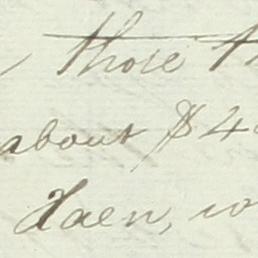 those
about $4
Haen, w